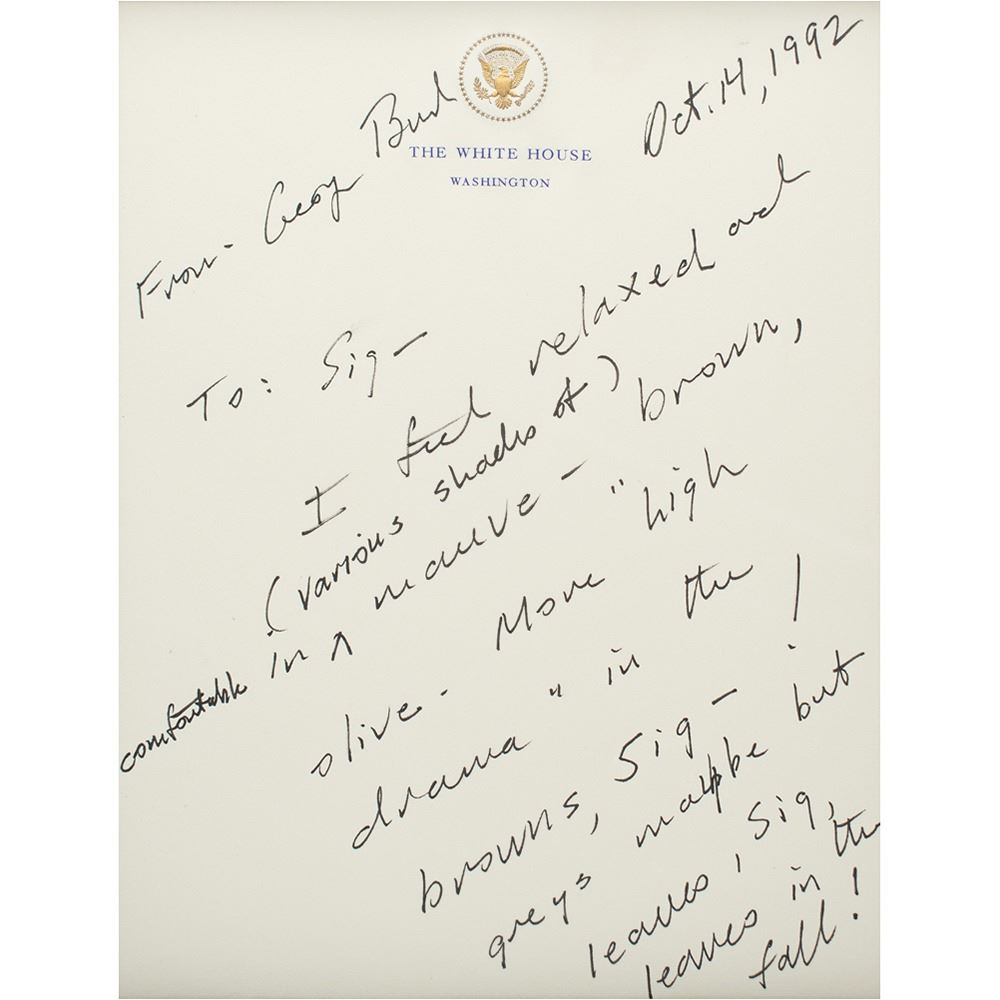 Oct. 14, 1992
From- Geo Bush
THE WHITE HOUSE
WASHINGTON
To: Sig-
I feel relaxed and
comfortable in ^ (various shades of) brown,
mauve -
olive - More "high
drama" in the
browns, Sig - !
greys maybe but
leaves, Sig,
leaves in the
fall!